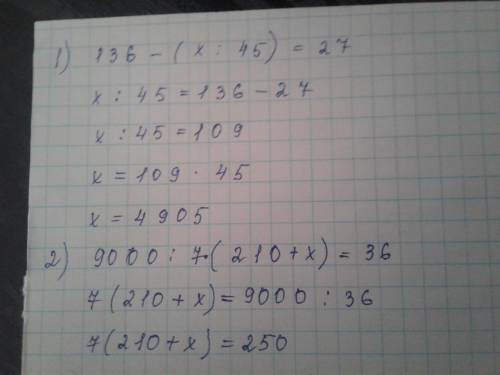 1) 136 - (x : 45) = 27
x : 45 = 136 - 27
x : 45 = 109
x = 109 · 45
x = 4905
2) 9000 : 7·(210 + x) = 36
7(210 + x) = 9000 : 36
7(210 + x) = 250